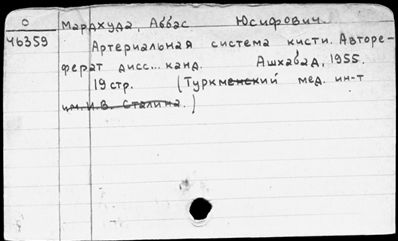 О
Ч6359
Мардхуда, Аббас Юсифович.
Артериальная система кисти. Авторе-
ферат дисс... канд. Ашхабад, 1955.
19 стр. (Туркменский мед. ин-т
им. И.В. Сталина.)